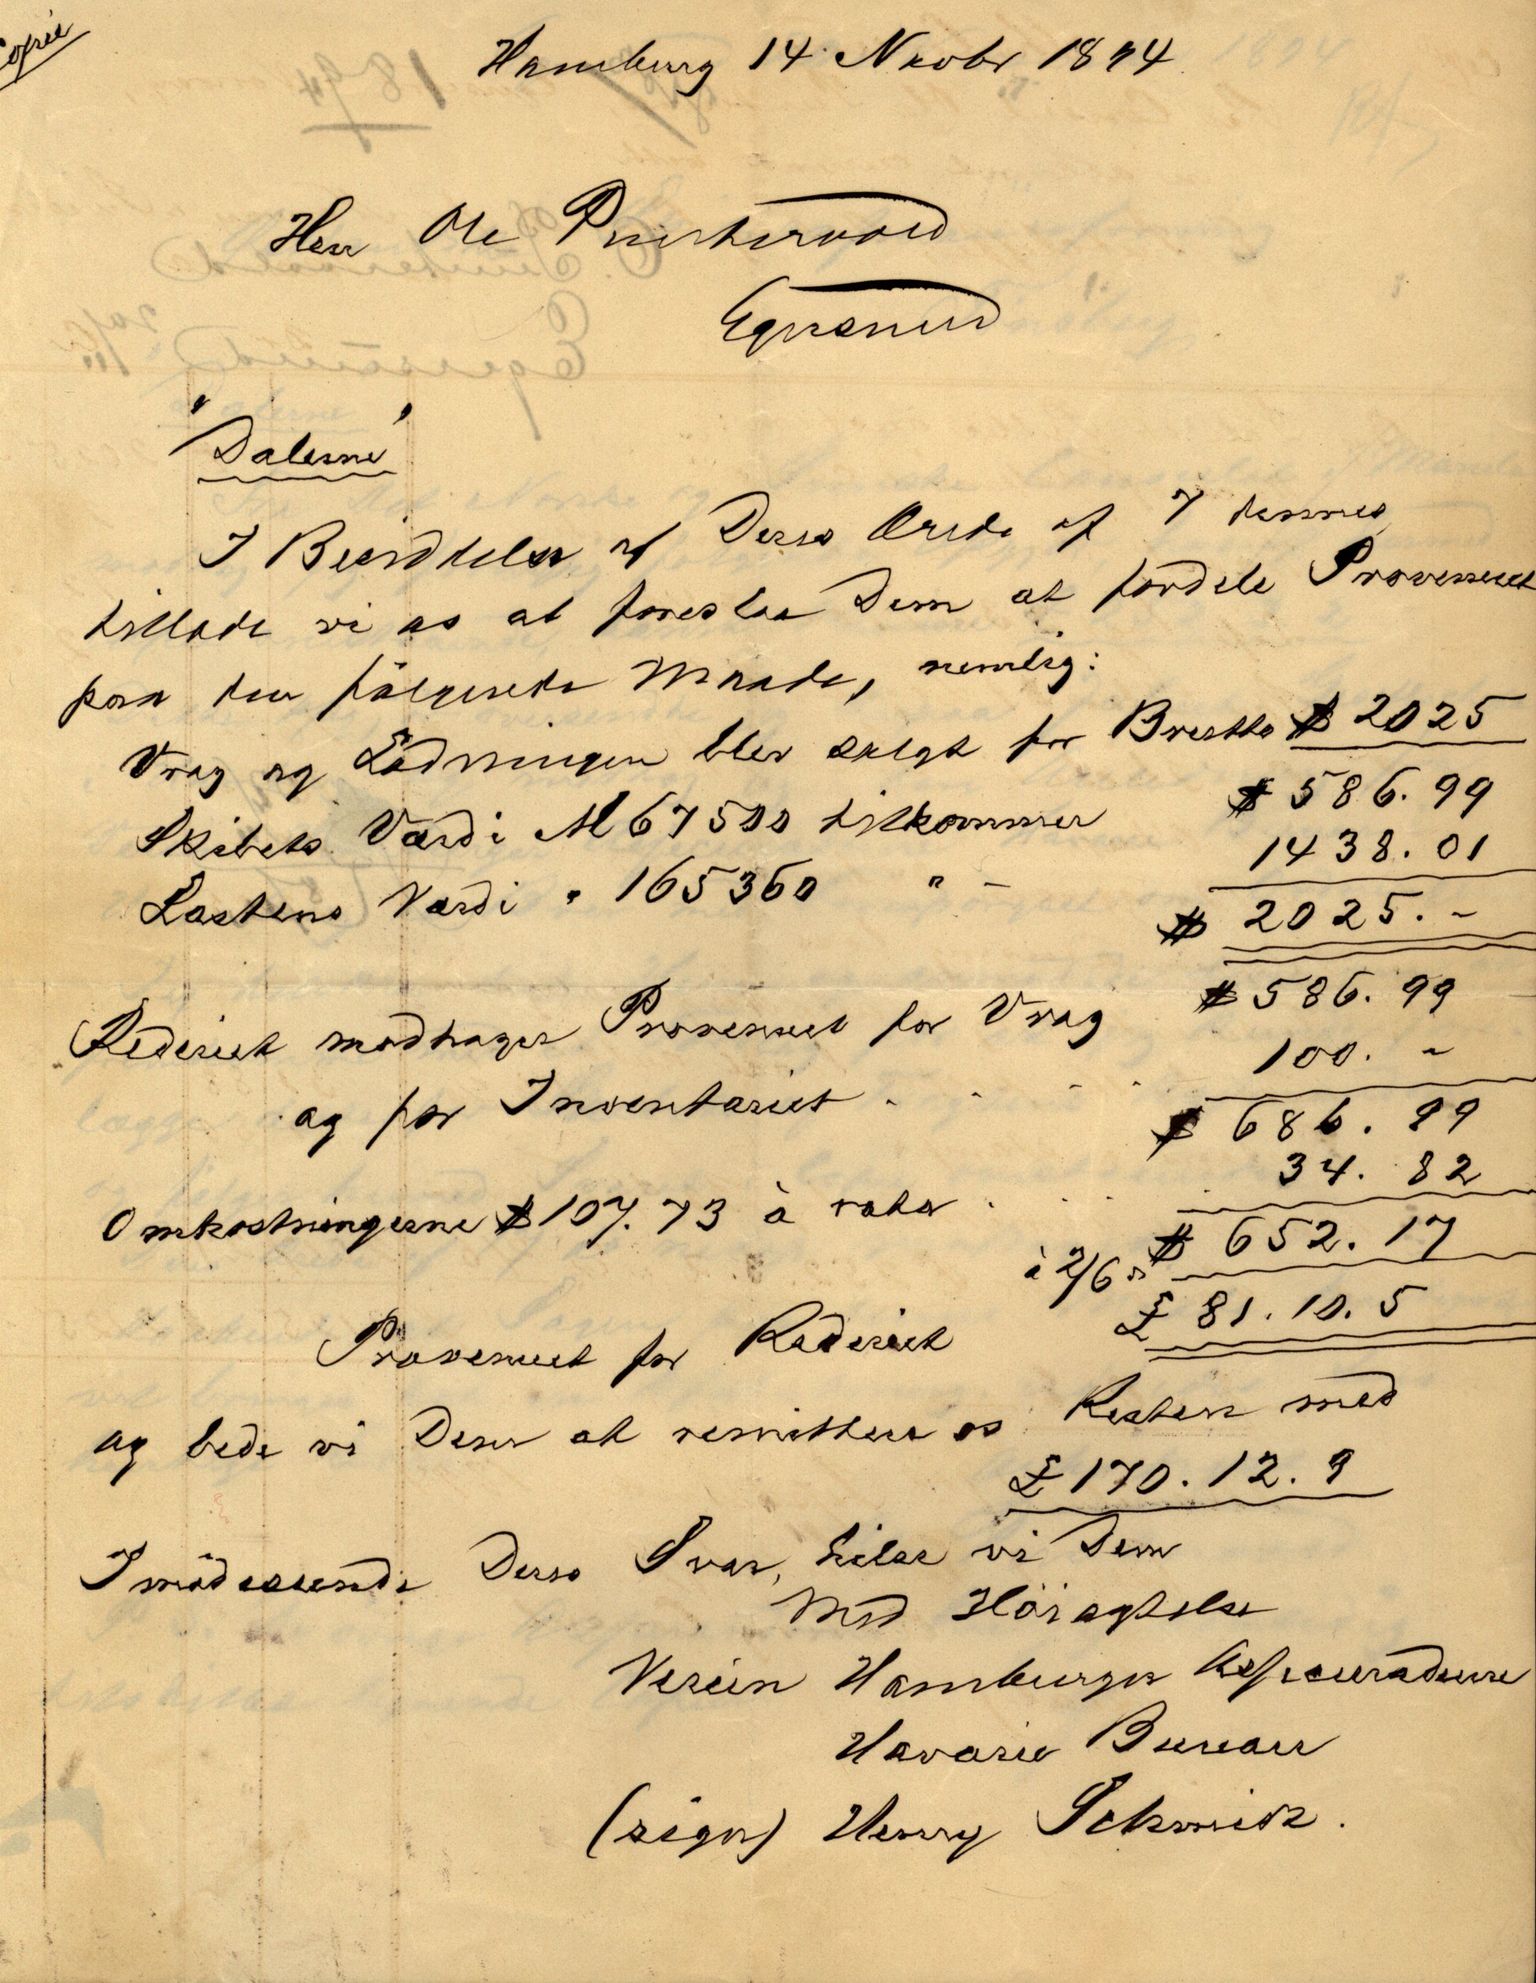 Copie
Hamburg 14 Novbr 1894
Herr Ole Puntervold
Egersund
"Dalerne"
I Besiddelse af Deres Ærede af 7 dennes
tillade vi os at foreslaa Dem at fordele Provenuet
paa den fölgende Maade, nemlig:
Vrag og Ladningen blev solgt for Brutto $ 2025
Skibets Værdi M 67500 tilkommer $ 586.99
Lastens Værdi " 165360 " - 1438.01
$ 2025.-
Rederiet modtager Provenuet for Vrag $ 586.99
og for Inventariet . . . . 100. -
$ 686.99
Omkostningerne $ 107.73 à rata . . . . 34.82
$ 652.17
à 2/6
Provenuet for Rederiet £ 81.10.5
og bede vi Dem at remittere os Resten med
£ 170.12.9
Imödeseende Deres Svar, hilse vi Dem
Med Höiagtelse
Verein Hamburger Assecuradeure
Havarie Bureau
(sign) Henry Schmidt.